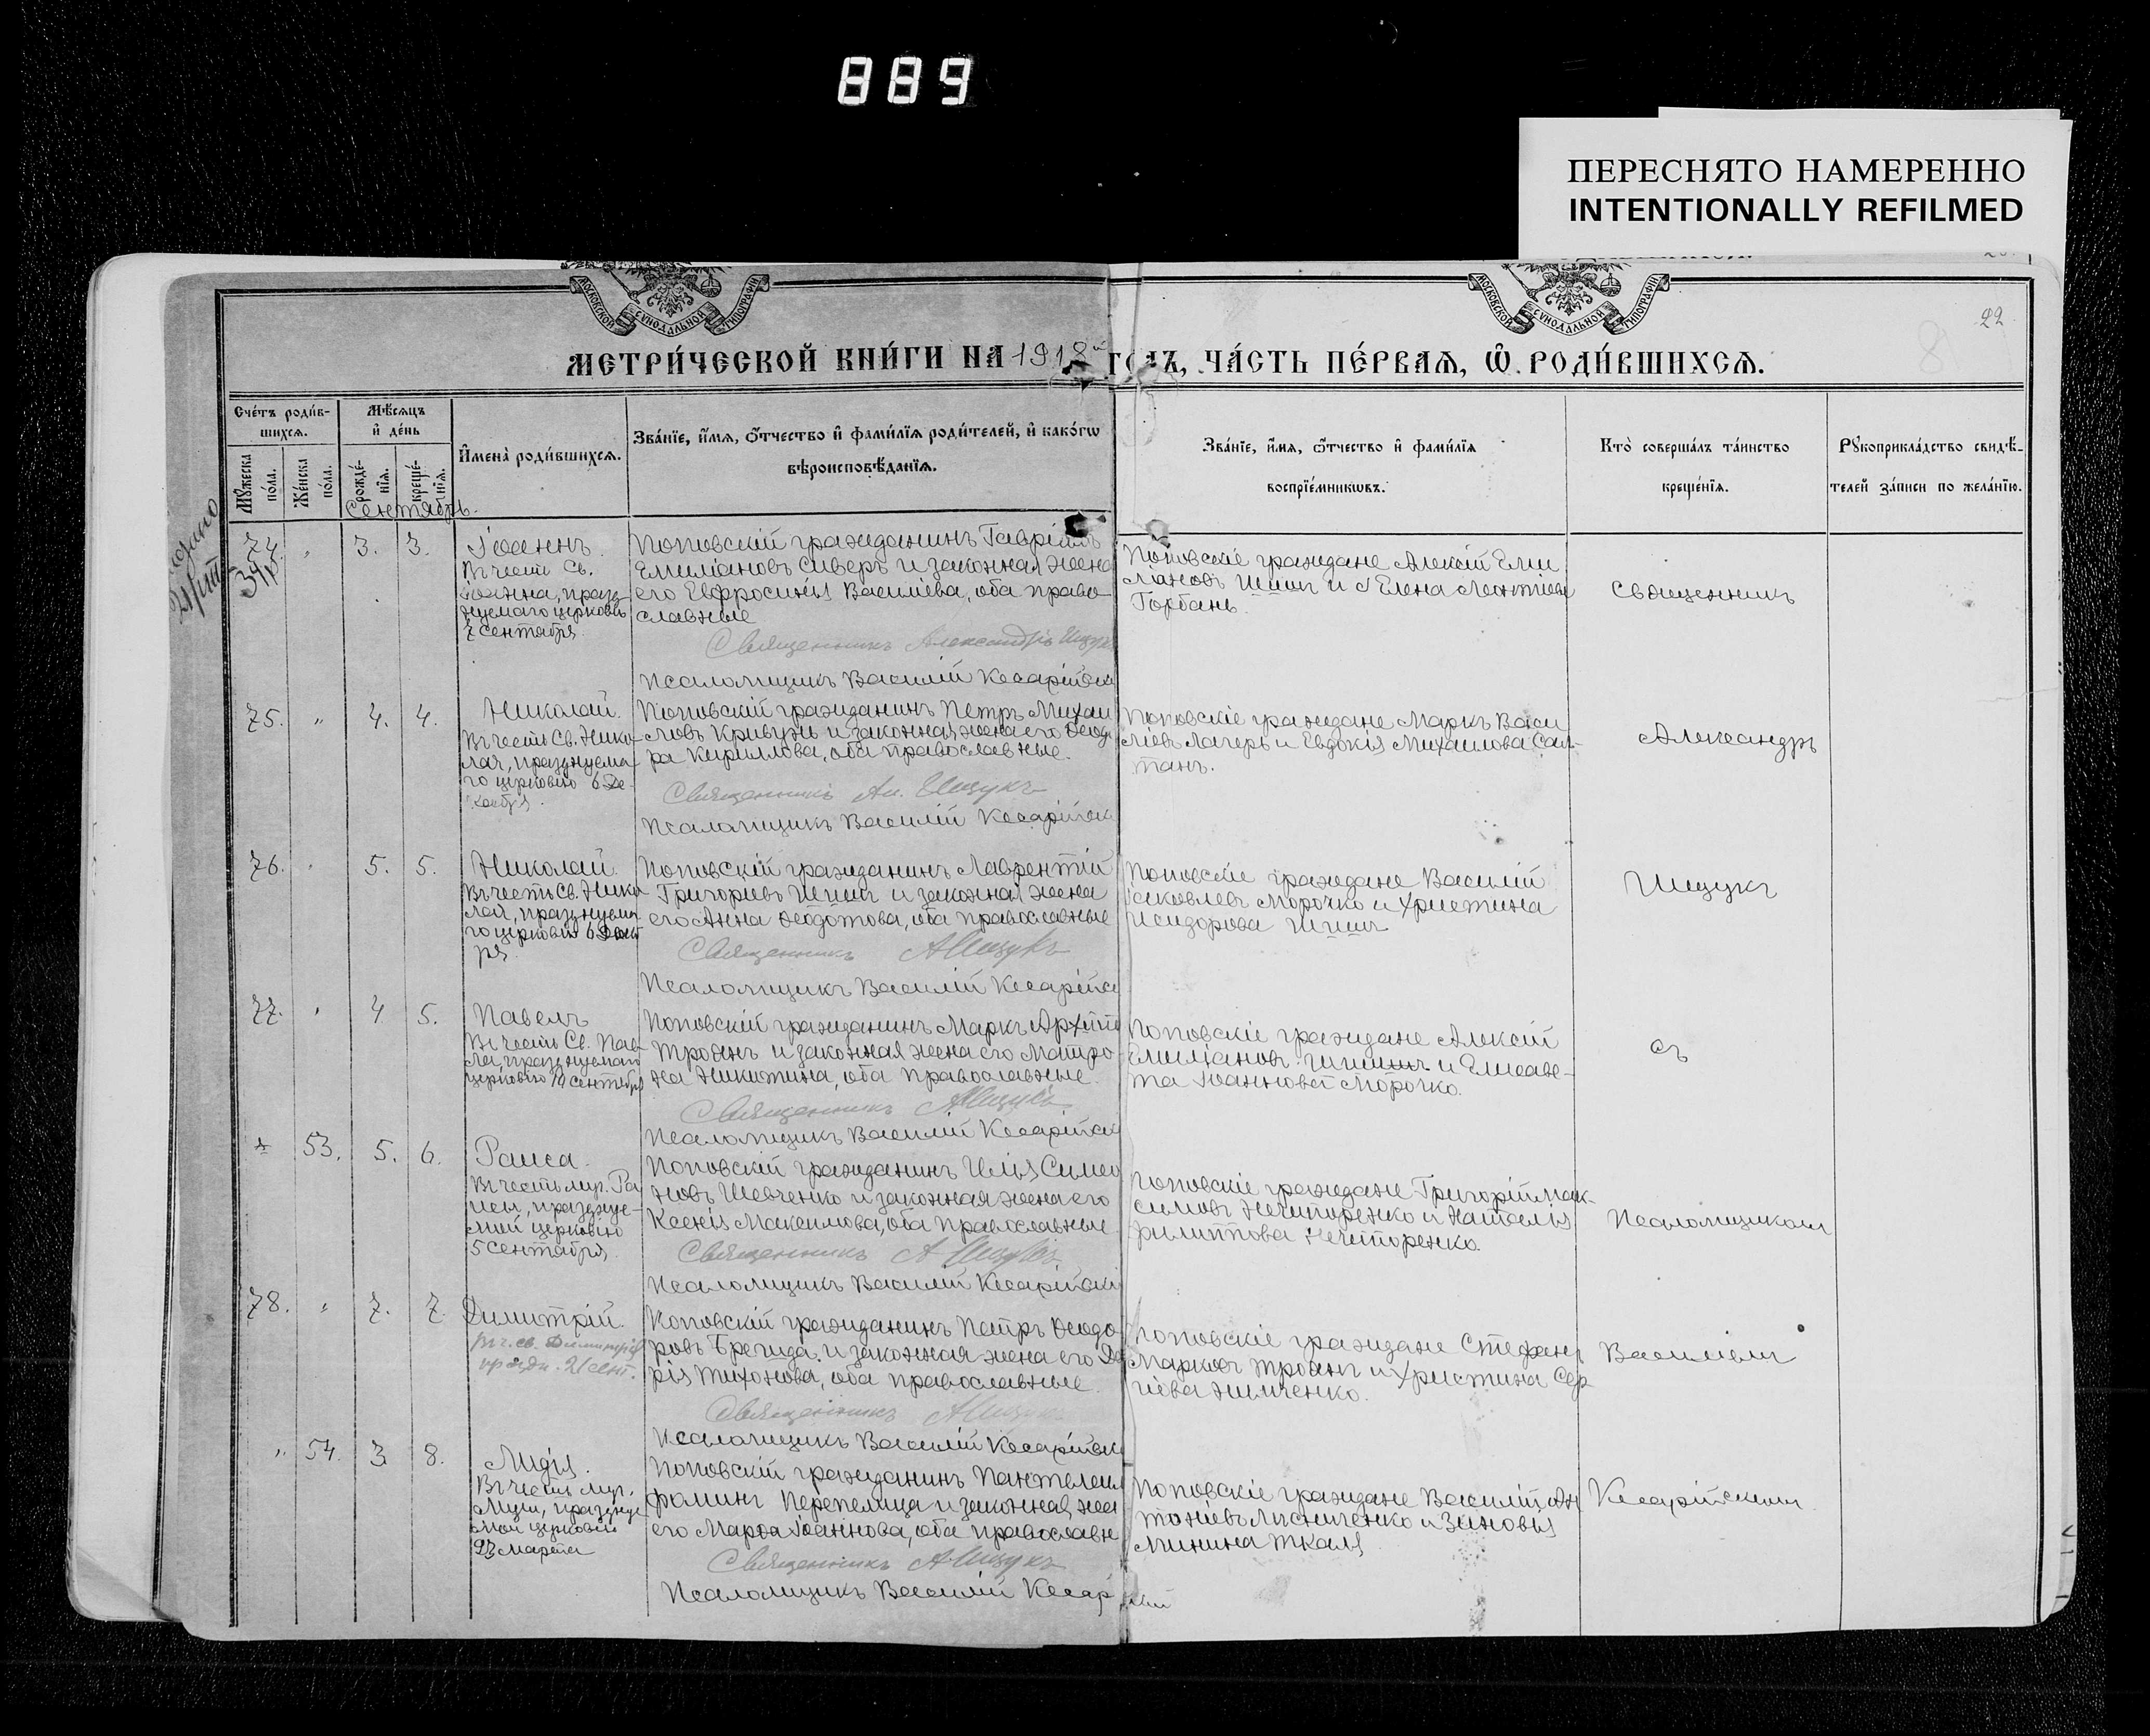 889
ПЕРЕСНЯТО НАМЕРЕННО
INTENTIONALLY REFILMED
МОСКОВСКОЙ СУНОДАЛЬНОЙ ТИПОГРАФІИ
МОСКОВСКОЙ СУНОДАЛЬНОЙ ТИПОГРАФІИ
22
МЕТРИ́ЧЕСКОЙ КНИ́ГИ НА 1918й ГОДЪ, ЧА́СТЬ ПЕ́РВАЯ, Ѡ РОДИ́ВШИХСЯ.
Сче́тъ роди́в-
шихсѧ.
Мꙋжеска по́ла.
Же́нска по́ла.
Мѣ́сѧцъ
и҆ де́нь
рожде́-
нїѧ.
креще́-
нїѧ.
И҆мена̀ роди́вшихсѧ.
Зва́нїе, и҆́мѧ, ѻ҆́тчество и҆ фами́лїѧ роди́телей, и҆ како́гѡ
вѣроисповѣ́данїѧ.
Зва́нїе, и҆́мѧ, ѻ҆́тчество и҆ фами́лїѧ
воспрїе́мникѡвъ.
Кто̀ соверша́лъ та́инство
креще́нїѧ.
Рꙋкоприкла́дство свидѣ́-
телей за́писи по жела́нїю.
Сентябрь.
74. " 3. 3. Іоаннъ.
Въ честь Св.
Іоанна, празд-
нуемаго церковью
7 сентября
Поповскій гражданинъ Гавріилъ
Емиліановъ Сиверъ и законная жена
его Евфросинія Василіева, оба право-
славные
Священникъ Александръ Ищукъ
Псаломщикъ Василій Кесарійскій
Поповскіе граждане Алексій Еми
ліановъ Шишъ и Елена Леонтіева
Горбань.
Священникъ
75. " 4. 4. Николай.
Въ честь Св. Нико-
лая, празднуема-
го церковію 6 Де-
кабря.
Поповскій гражданинъ Петръ Михаи
ловъ Кривунъ и законная жена его Ѳеодо
ра Кириллова, оба православные.
Священникъ Ал. Ищукъ
Псаломщикъ Василій Кесарійскій
Поповскіе граждане Маркъ Васи
ліевъ Лагеръ и Евдокія Михаилова Сал-
танъ.
Александръ
76. " 5. 5. Николай.
Въ честь Св. Нико
лая, празднуема
го церковію 6 Декаб
ря
Поповскій гражданинъ Лаврентій
Григоріевъ Шишъ и законная жена
его Анна Ѳеодотова, оба православные
Священникъ А Ищукъ
Псаломщикъ Василій Кесарійск
Поповскіе граждане Василій
Іаковлевъ Морочко и Христина
Исидорова Шишъ
Ищукъ
77. " 4 5. Павелъ
Въ честь Св. Пав-
ла, празднуемаго
церковію 10 сентября
Поповскій гражданинъ Маркъ Архипп
Троянъ и законная жена его Матро-
на Никитина, оба православные.
Священникъ А Ищукъ
Псаломщикъ Василій Кесарійск
Поповскіе граждане Алексій
Емиліановъ Шишъ и Елисаве-
та Іоаннова Морочко.
съ
" 53. 5. 6. Раиса.
Въ честь муч. Ра
исы, праздnуе-
мой церковію
5 Сентября.
Поповскій гражданинъ Илія Симео
новъ Шевченко и законная жена его
Ксенія Максимова, оба православные.
Священникъ А Ищукъ
Псаломщикъ Василій Кесарійскі
Поповскіе граждане Григорій Мак-
симовъ Нечипоренко и Наталія
Филиппова Нечипоренко.
Псаломщикомъ
78. " 7. 7. Димитрій.
въ ч. св. Димитрія
праздн. 21 сент.
Поповскій гражданинъ Петръ Ѳеодо
ровъ Брегида и законная жена его Да
рія Тихонова, оба православные.
Священникъ А Ищукъ
Псаломщикъ Василій Кесарійск
Поповскіе граждане Стефанъ
Марковъ Троянъ и Христина Сер
гіева Нимченко.
Василіемъ
" 54. 3. 8. Лидія.
Въ честь муч.
Лидіи, праздnуе
мой церковію
23 Марта
Поповскій гражданинъ Пантелеим
Фоминъ Перепелица и законная жен
его Марѳа Іоаннова, оба православн
Священникъ А Ищукъ
Псаломщикъ Василій Кесарійскій
Поповскіе граждане Василій Ан
тоніевъ Лисниченко и Зиновія
Минина Ткаля
Кесарійскимъ.